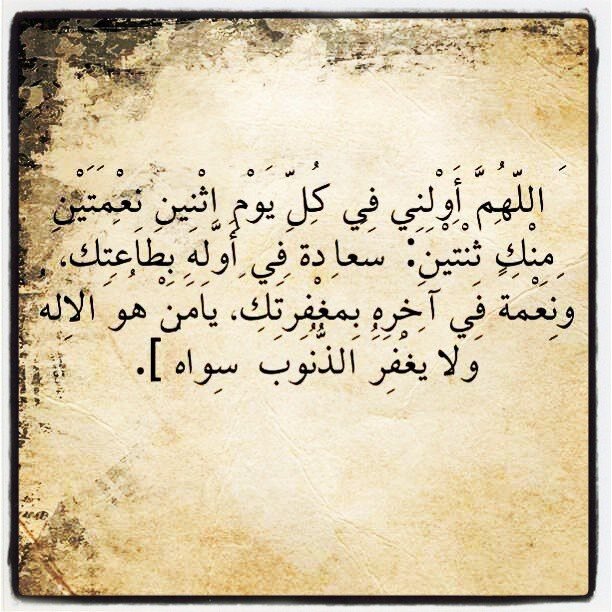 اَللّهُمَّ أَوْلِنِي فِي كُلِّ يَوْمِ اثْنِينِ نِعْمَتَيْنِ
مِنْكَ ثَنْتَيْنَ: سعادةً فِي أَوَّلِهِ بِطَاعَتِكَ،
وَنِعْمَةً فِي آخِرِهِ بِمَغْفِرَتَكَ، يَامَنْ هُوَ الاِلهُ
وَلا يَغْفِرُ الذُّنُوبَ سِواهُ ].